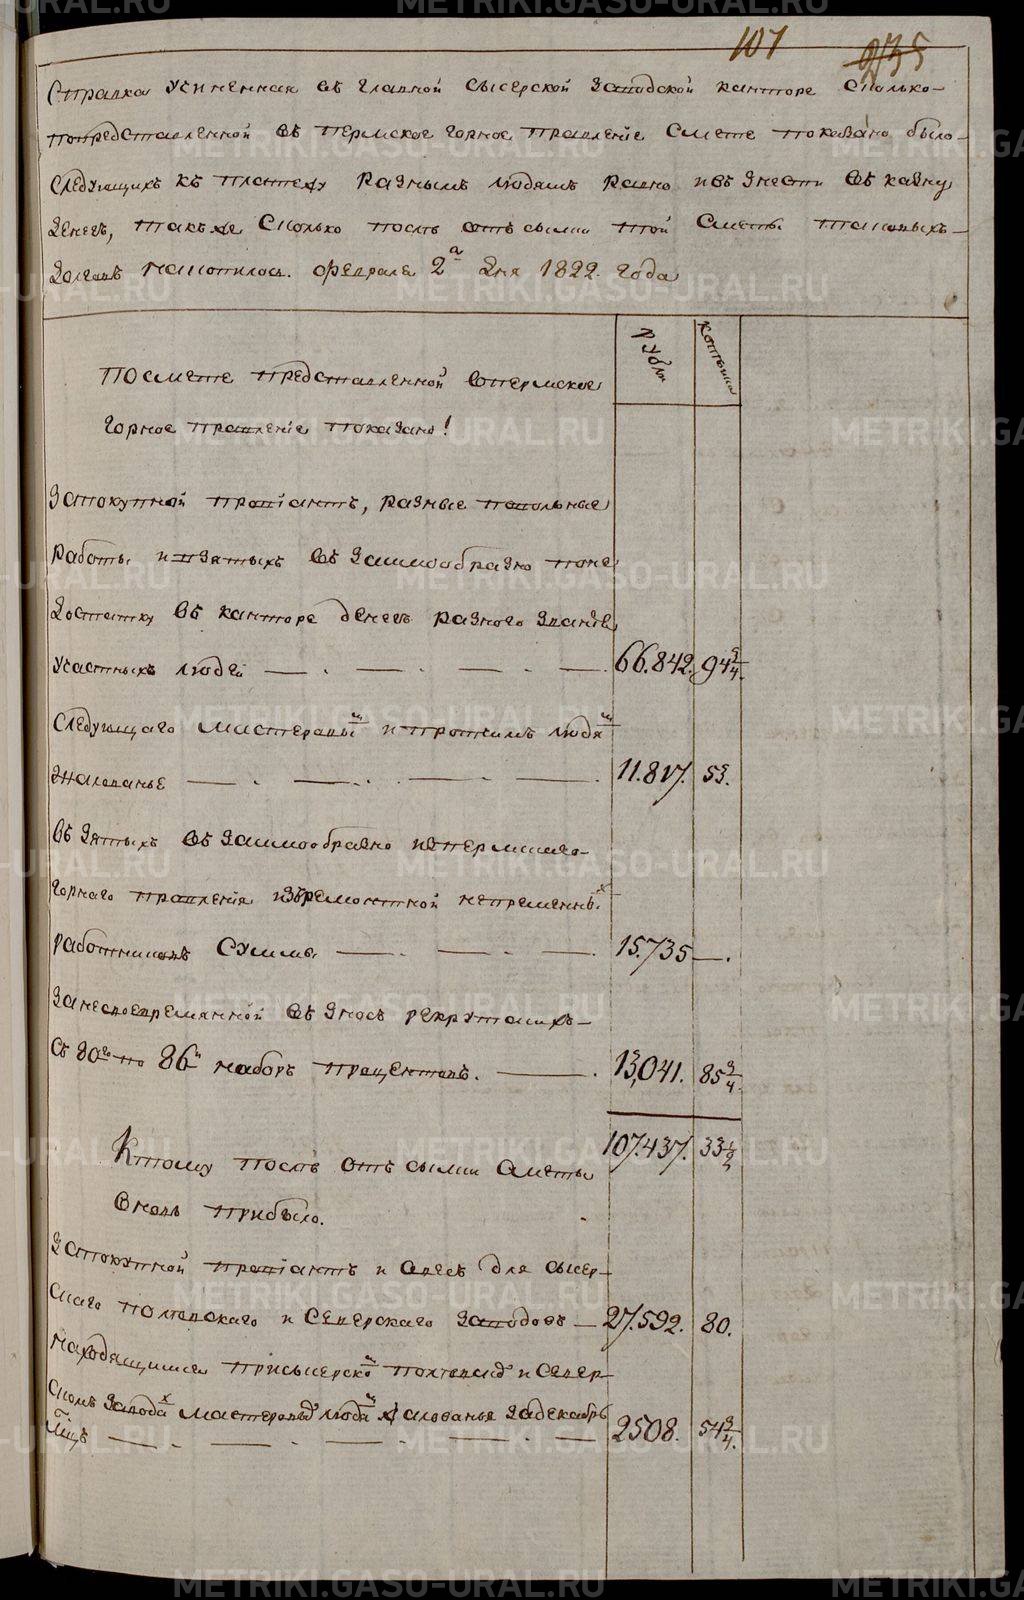 107
235
Справка учиненная въ главной сысерской заводской канторе сколько
попредставленной въ пермское горное правленіе смете показано было
следующихъ къ платежу разнымъ людямъ равно ивъ знести въ казну
денегъ, такъ же сколько послѣ отъ сылки той сметы таковыхъ
долговъ накопилось. февраля 2го дня 1822 года
рубли
копѣйки
Посмете представленной вопермское
горное правленіе показано!
Запокупной провіантъ, разные вольные
работы и взятыхъ въ заимообразно поне
достатку въ канторе денегъ разного званія
участныхъ людей 66.842. 94 3/4.
Следующаго мастеровымъ и протчимъ людямъ
жалованье 11.817. 53.
Въ зятыхъ въ заимообразно изпермскаго
горнаго правленія изъремонтной непременныхъ
работниковъ суммы 15.735 —.
Занесвоевремянной въ зносъ рекрутскихъ
съ 80го по 86й наборъ працентовъ. 13,041. 85 3/4.
107.437. 33 1/2
Ктому послѣ отъ сылки сметы
вновь прибыло.
Запокупной провіантъ и овесъ для сысер
скаго полевскаго и северскаго заводовъ 27.592. 80.
находящимся присысерскомъ полевскомъ и север
скомъ заводахъ мастеровымъ людямъ жалованья задекабрь
мцъ 2508. 54 3/4.